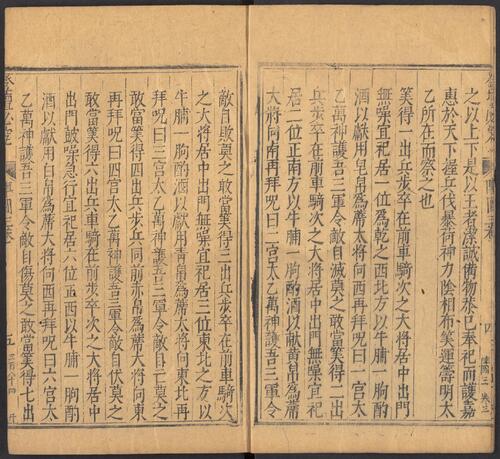 之以上下是以王者潔誠備物恭已奉祀而護嘉
惠於天下握兵伐暴衛神力陰相布筭運籌明太
乙所在而祭之也
筭得一出兵步卒在前車騎次之大將居中出門
無譟宜祀居一位爲乾之西北方以牛脯一朐酌
酒以獻用皂帛爲蓆大將向西北再拜呪曰一宮太
乙萬神護吾三軍令敵自滅莫之敢當筭得二出
兵步卒在前車騎次之大將居中出門無譟宜祀
居二位正南方以牛脯一朐酌酒以獻用帛爲蓆
大將向南再拜呪曰二宮太乙萬神護吾三軍令
敵自敗莫之敢當筭得三出兵步卒在前車騎次
之大將居中出門無譟宜祀居三位東北之方以
牛脯一朐酌酒以獻用青帛爲蓆大將向東北再
拜呪曰三宮太乙萬神護吾三軍令敵自亡莫之
敢當筭得四出兵步兵同前赤帛爲蓆大將向東
再拜呪曰四宮太乙萬神護吾三軍令敵自伏莫之
敢當筭得六出兵車騎在前步卒次之大將居中
出門鼓譟急行宜祀居六位正西以牛脯一朐酌
酒以獻用白帛爲蓆大將向西再拜呪曰六宮太
乙萬神護吾三軍令敵自傷莫之敢當筭得七出